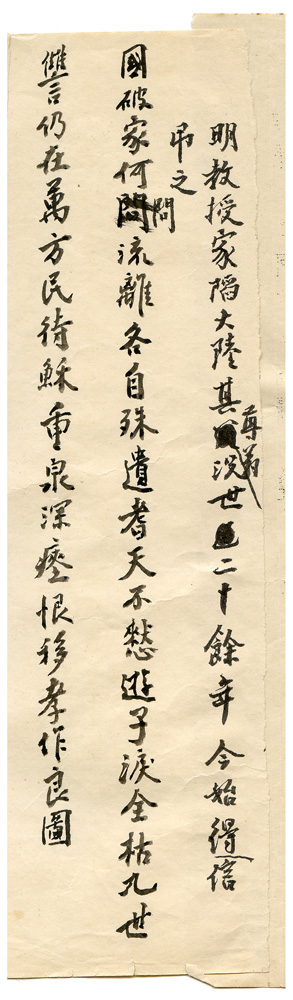 明教授家陷大陸其尊翁沒世二十餘年今始得信
吊之
國破家何問流離各自殊遺耆天不憖遊子淚全枯九世
讐仍在萬方民待穌重泉深瘞恨移孝作良圖